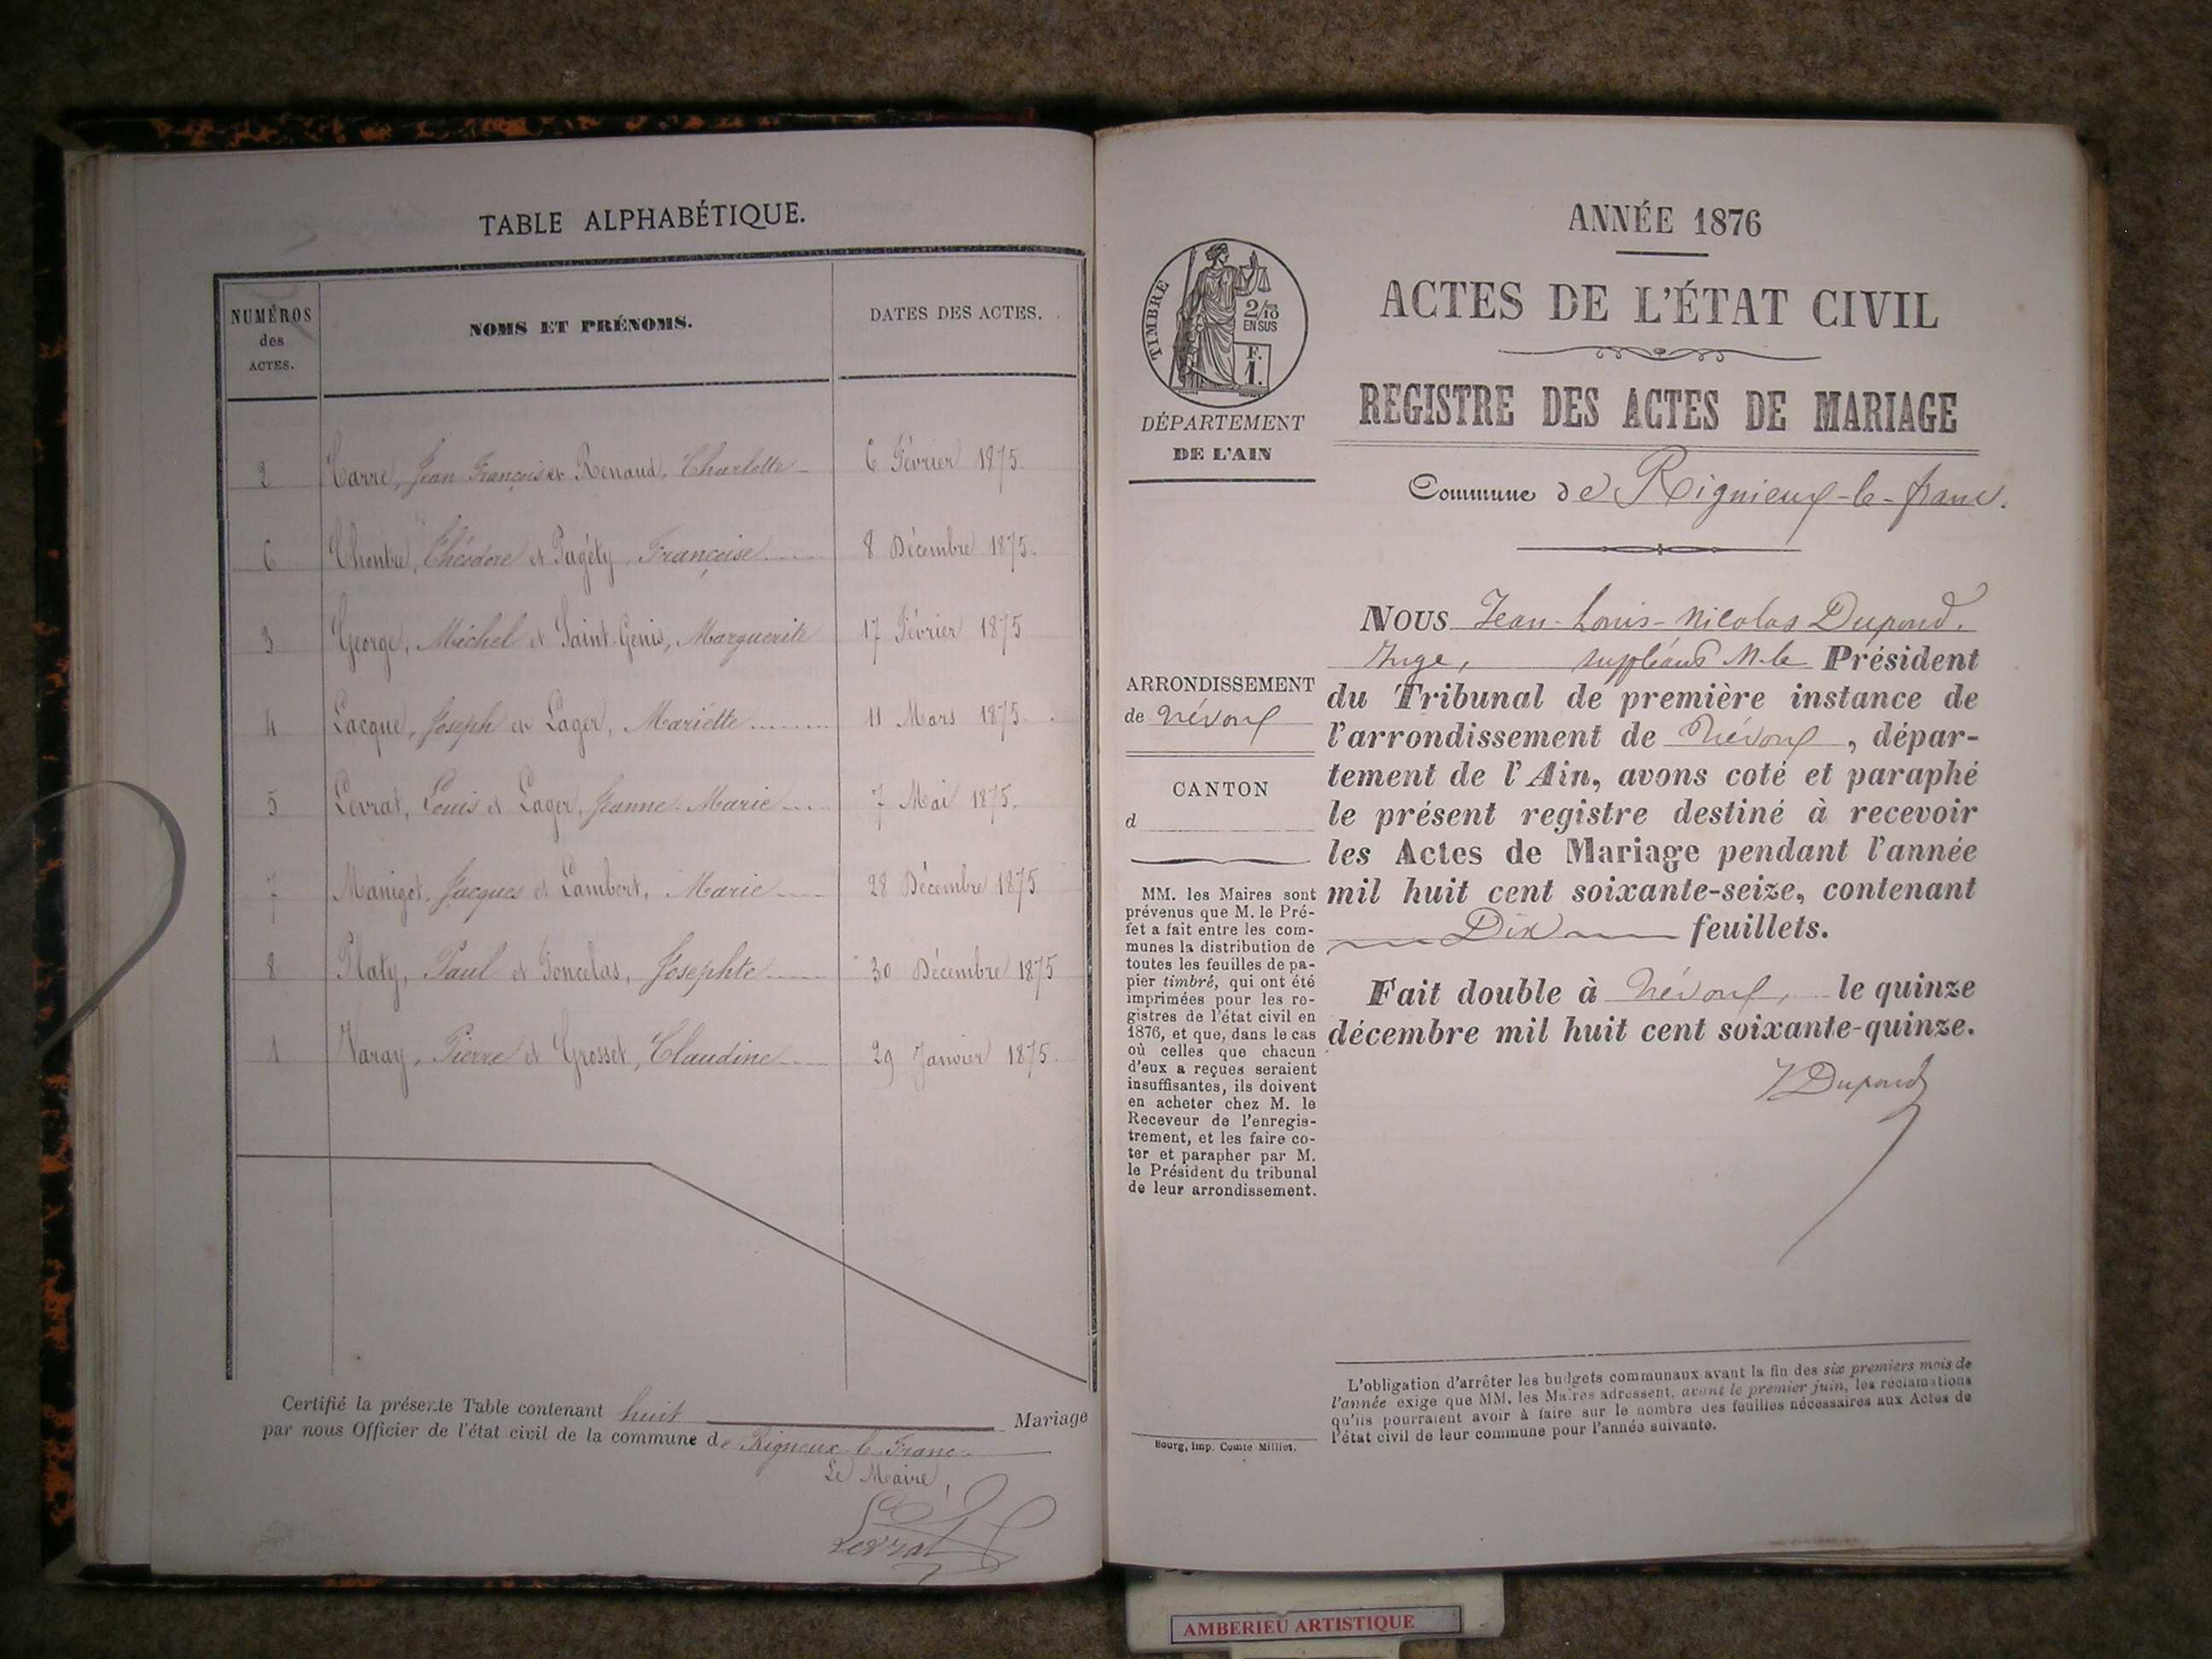 TABLE ALPHABÉTIQUE.
NUMÉROS des ACTES.
NOMS ET PRÉNOMS.
DATES DES ACTES.
2 Carre, Jean François et Renaud, Charlotte 6 Février 1875.
6 Théodore et Françoise 8 Décembre 1875.
3 George, Michel et Saint-Genis, Marguerite 17 Février 1875
4 Lacque, Joseph et Lager, Mariette 11 Mars 1875.
5 Levrat, Louis et Lager, Jeanne-Marie 7 Mai 1875.
7 Manigot, Jacques et Lambert, Marie 28 Décembre 1875
8 Platy, Paul et Josephte 30 Décembre 1875
1 Varay, Pierre et Grosset, Claudine 29 Janvier 1875.
Certifié la présente Table contenant huit Mariage
par nous Officier de l'état civil de la commune de Rigneux-le-Franc
Le Maire,
Levrat
ANNÉE 1876
ACTES DE L'ÉTAT CIVIL
REGISTRE DES ACTES DE MARIAGE
Commune de Rignieux-le-franc.
TIMBRE
2/10
EN SUS
F.
1.
DÉPARTEMENT
DE L'AIN
ARRONDISSEMENT
de Trévoux
CANTON
d
MM. les Maires sont
prévenus que M. le Pré-
fet a fait entre les com-
munes la distribution de
toutes les feuilles de pa-
pier timbré, qui ont été
imprimées pour les re-
gistres de l'état civil en
1876, et que, dans le cas
où celles que chacun
d'eux a reçues seraient
insuffisantes, ils doivent
en acheter chez M. le
Receveur de l'enregis-
trement, et les faire co-
ter et parapher par M.
le Président du tribunal
de leur arrondissement.
Bourg, Imp. Comte-Milliet.
NOUS Jean-Louis-Nicolas Dupond,
Juge, suppléant M. le Président
du Tribunal de première instance de
l'arrondissement de Trévoux, dépar-
tement de l'Ain, avons coté et paraphé
le présent registre destiné à recevoir
les Actes de Mariage pendant l'année
mil huit cent soixante-seize, contenant
Dix feuillets.
Fait double à Trévoux, le quinze
décembre mil huit cent soixante-quinze.
J Dupond
L'obligation d'arrêter les budgets communaux avant la fin des six premiers mois de
l'année exige que MM. les Maires adressent, avant le premier juin, les réclamations
qu'ils pourraient avoir à faire sur le nombre des feuilles nécessaires aux Actes de
l'état civil de leur commune pour l'année suivante.
AMBERIEU ARTISTIQUE